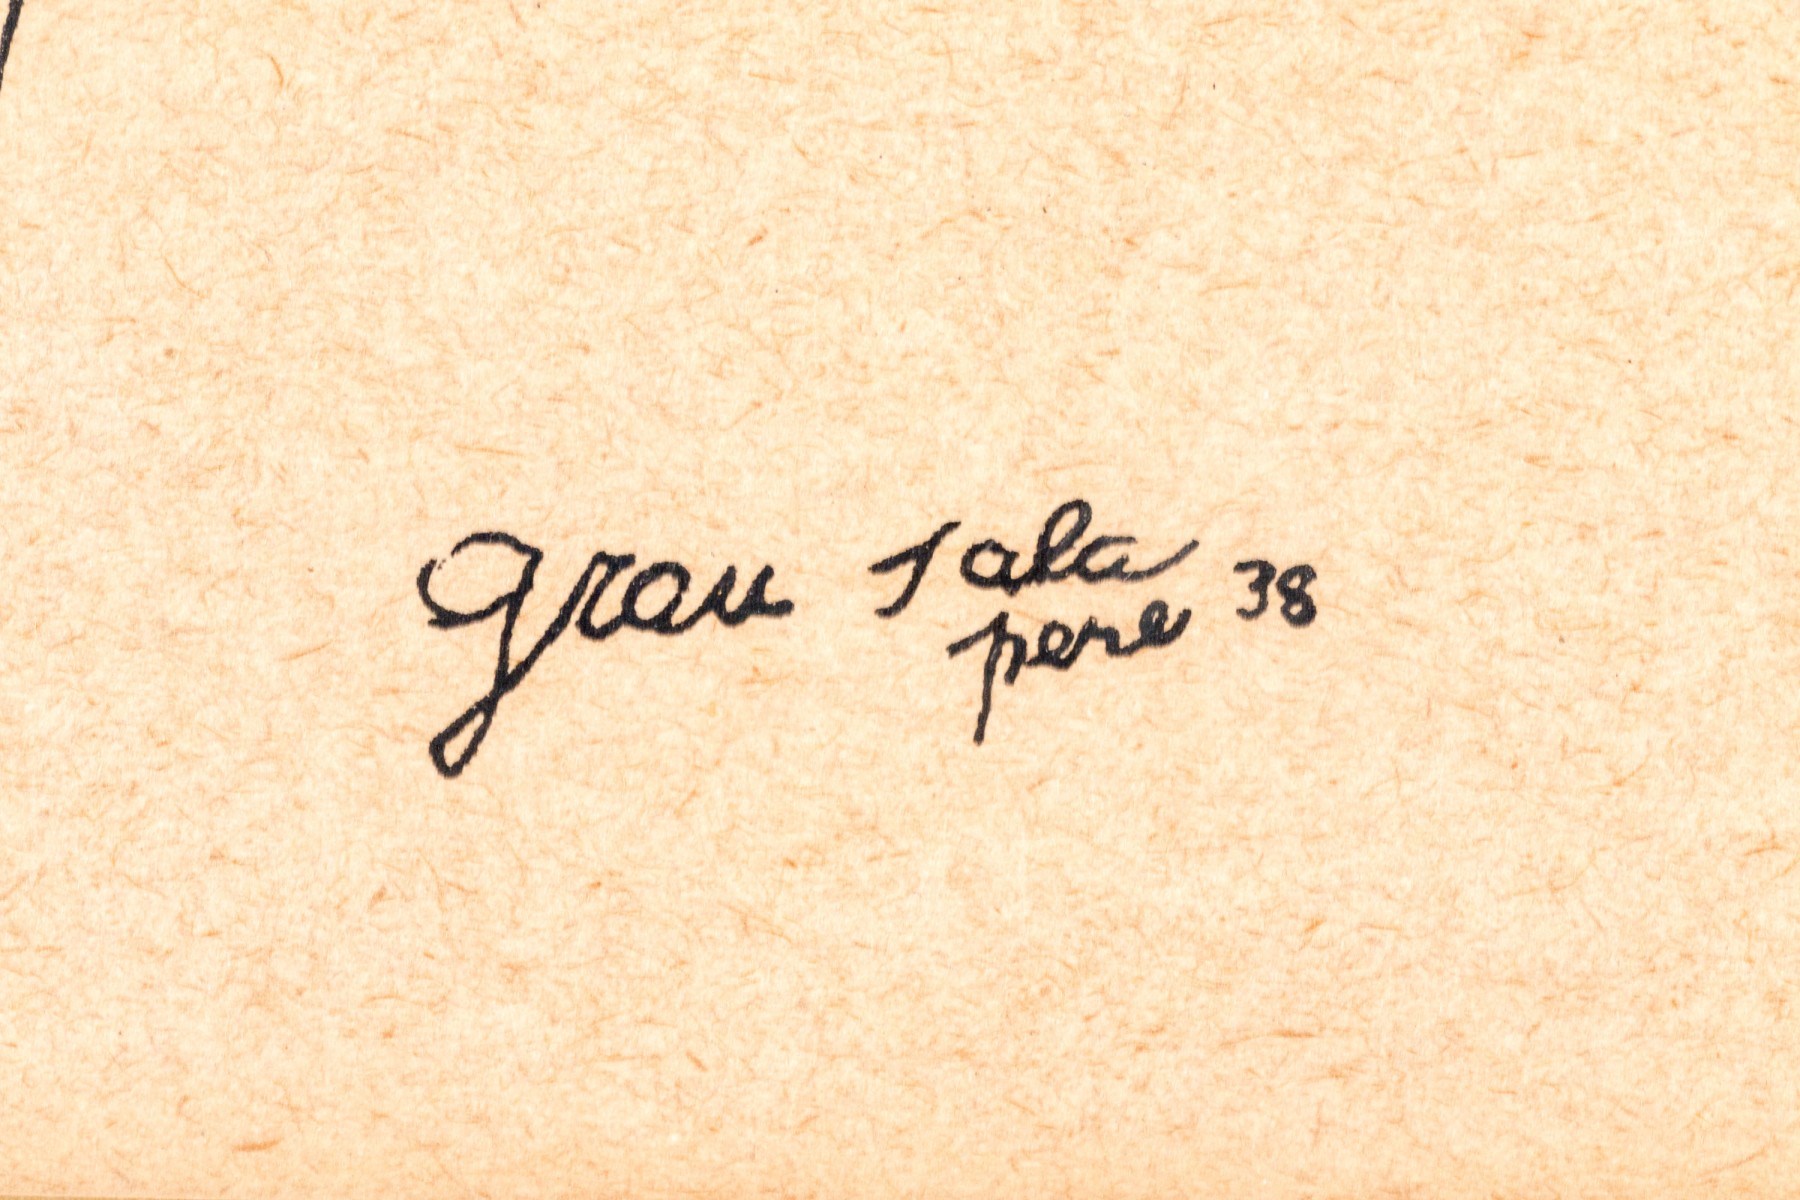 grau Sala 38
pere